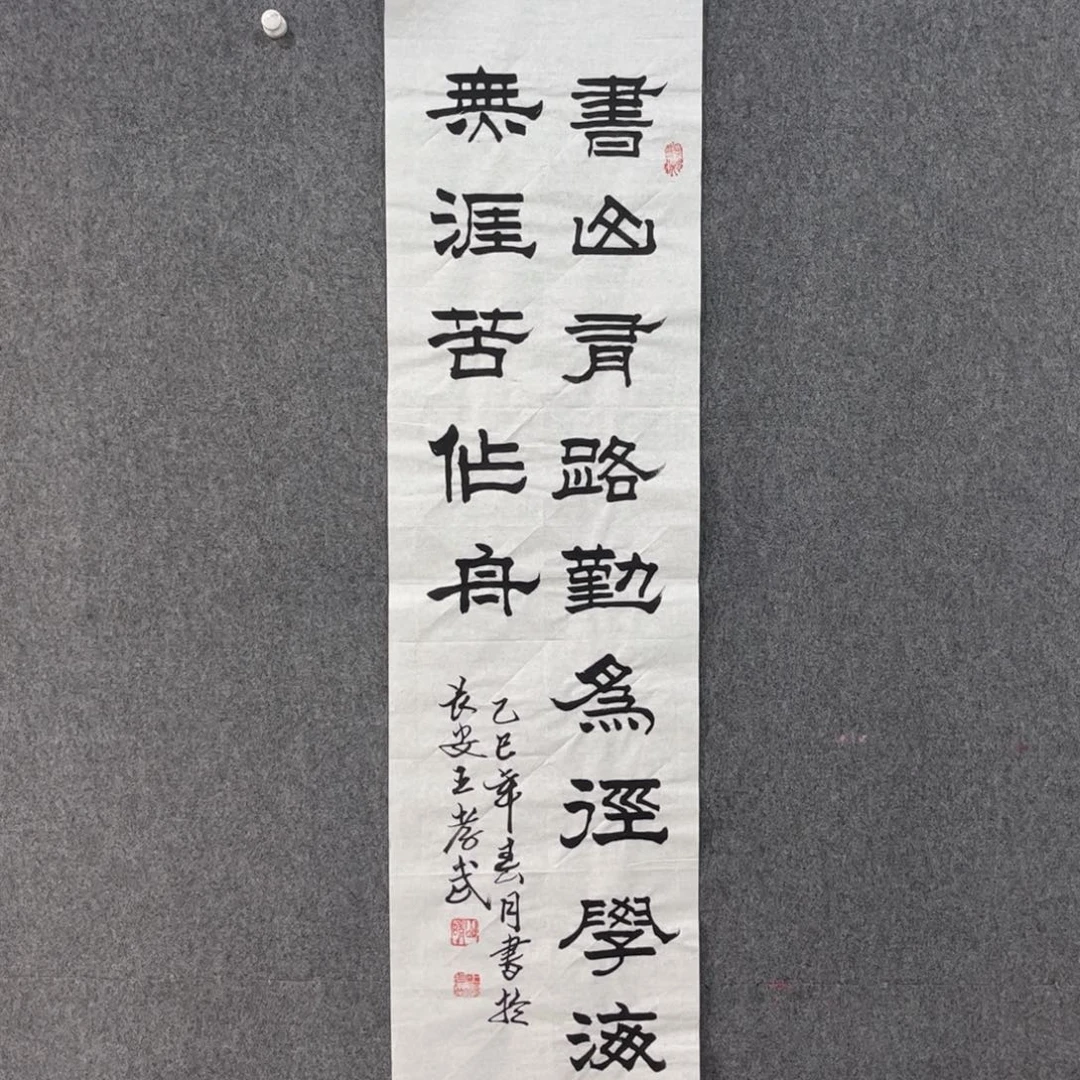 書山有路勤為徑學海
無涯苦作舟
乙巳年春月書於
長安王孝武